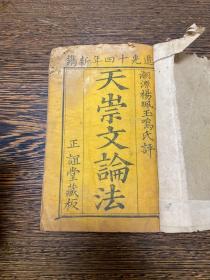 道光十四年新鐫
湘潭楊鳴玉鳴氏評
天崇文論法
正誼堂藏板